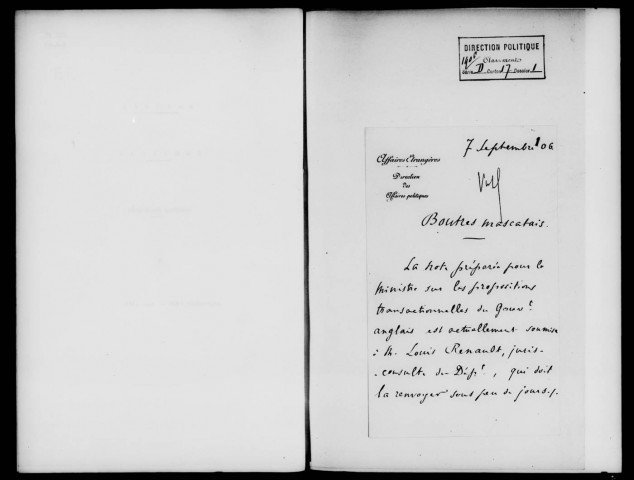 DIRECTION POLITIQUE
Classement
7 Septembre 06
Affaires Etrangères
Direction
des
Affaires politiques
Boutres mascatais.
La note préparée pour le
Ministre sur les propositions
transactionnelles du Gouvt.
anglais est actuellement soumise
à M. Louis Renault, juris-
-consulte du Dépt., qui doit
la renvoyer sous peu de jours./.